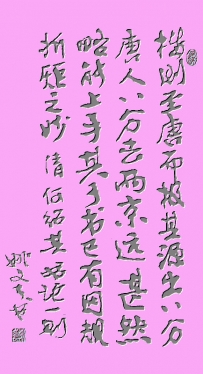 楷则至唐而极其源出八分
唐人八分去两京远甚然
略能上手其于书已有因规
折矩之妙 清何绍基语论一则